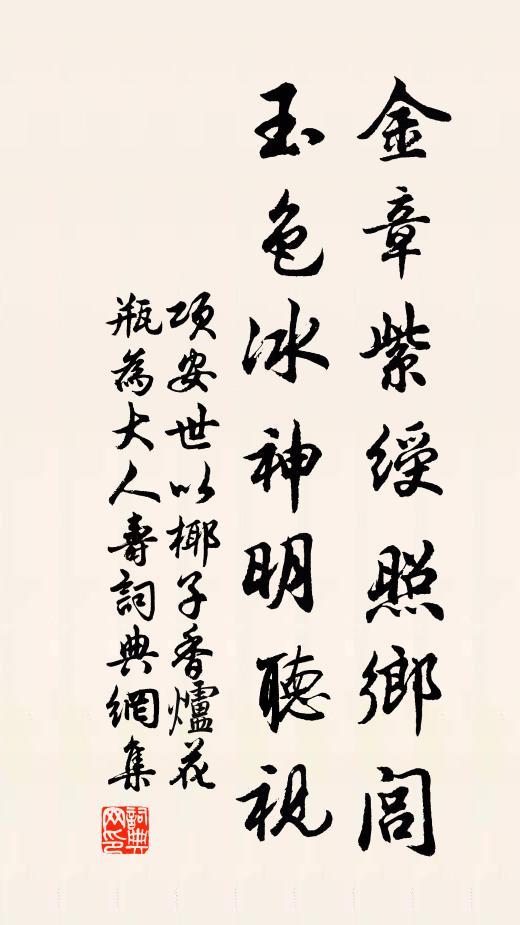 金章紫綬照鄉閭
玉色冰神明聽視
項安世以椰子香爐花
瓶為大人壽詞典網集
詞典网印